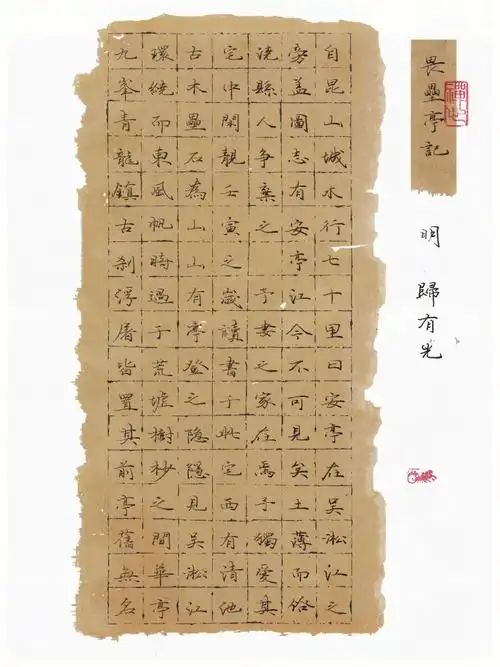 畏壘亭記
明 歸有光
自昆山城水行七十里曰安亭在吳淞江之
旁蓋圖志有安亭江今不可見矣土薄而俗
澆縣人爭棄之 予妻之家在焉予獨愛其
宅中閑靚壬寅之歲讀書于此宅西有清池
古木壘石為山山有亭登之隱隱見吳淞江
環繞而東風帆時過于荒墟樹杪之間華亭
九峯青龍鎮古剎浮屠皆置其前亭舊無名